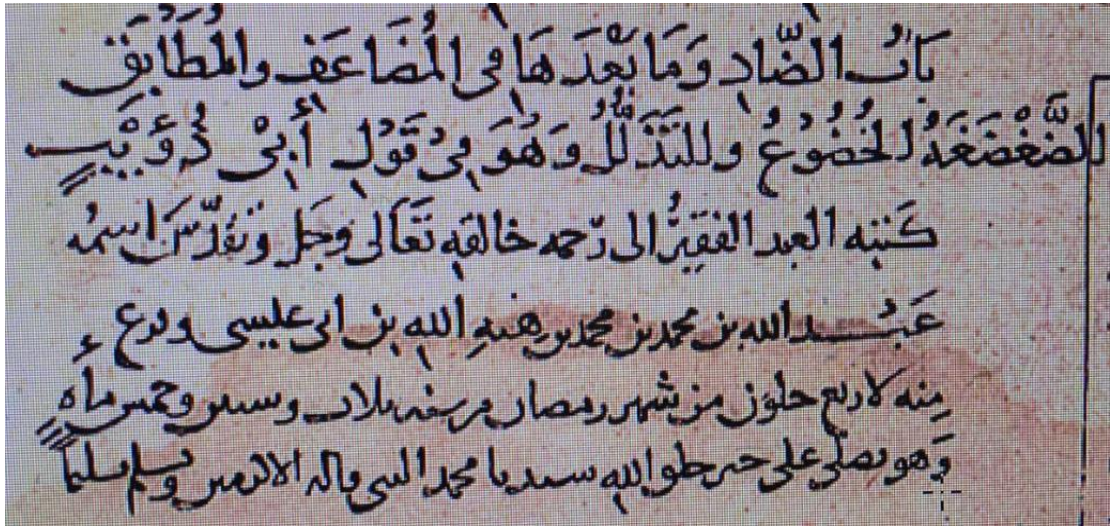 بَابُ الضَّادِ وَمَا بَعْدَهَا فِي الْمُضَاعَفِ والْمُطَابَقِ
الضَّعْضَعَةُ الخُضُوْعُ والتَذَلُّلُ وَهُوَ فِيْ قَوْلِ أَبِيْ ذُؤَيْبٍ
كَتَبَه العبد الفقيرُ الى رَحمه خالقه تَعَالى وَجَل وتقدّسَ اسمُه
عَبْد الله بن محمد بن محمد بن هبهِ الله بن ابى عليسى وفرغ
مِنه لاربع خلون من شهر رمضان من سنه ثلاث وستين وخمس مايهٍ
وَهو يصلي على خير خلق الله سيدنا محمد النبي واله الاكرمين ويسلم تسليماً